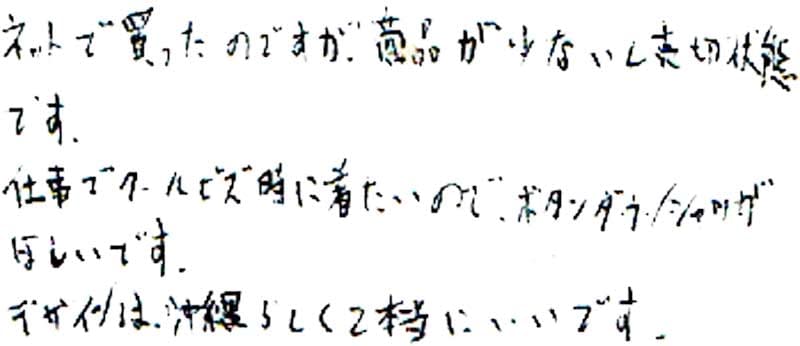 ネットで買ったのですが、商品が少ないし売切状態
です。
仕事でクールビズ時に着たいので、ボタンダウンシャツが
ほしいです。
デザインは、沖縄らしくて本当にいいです。